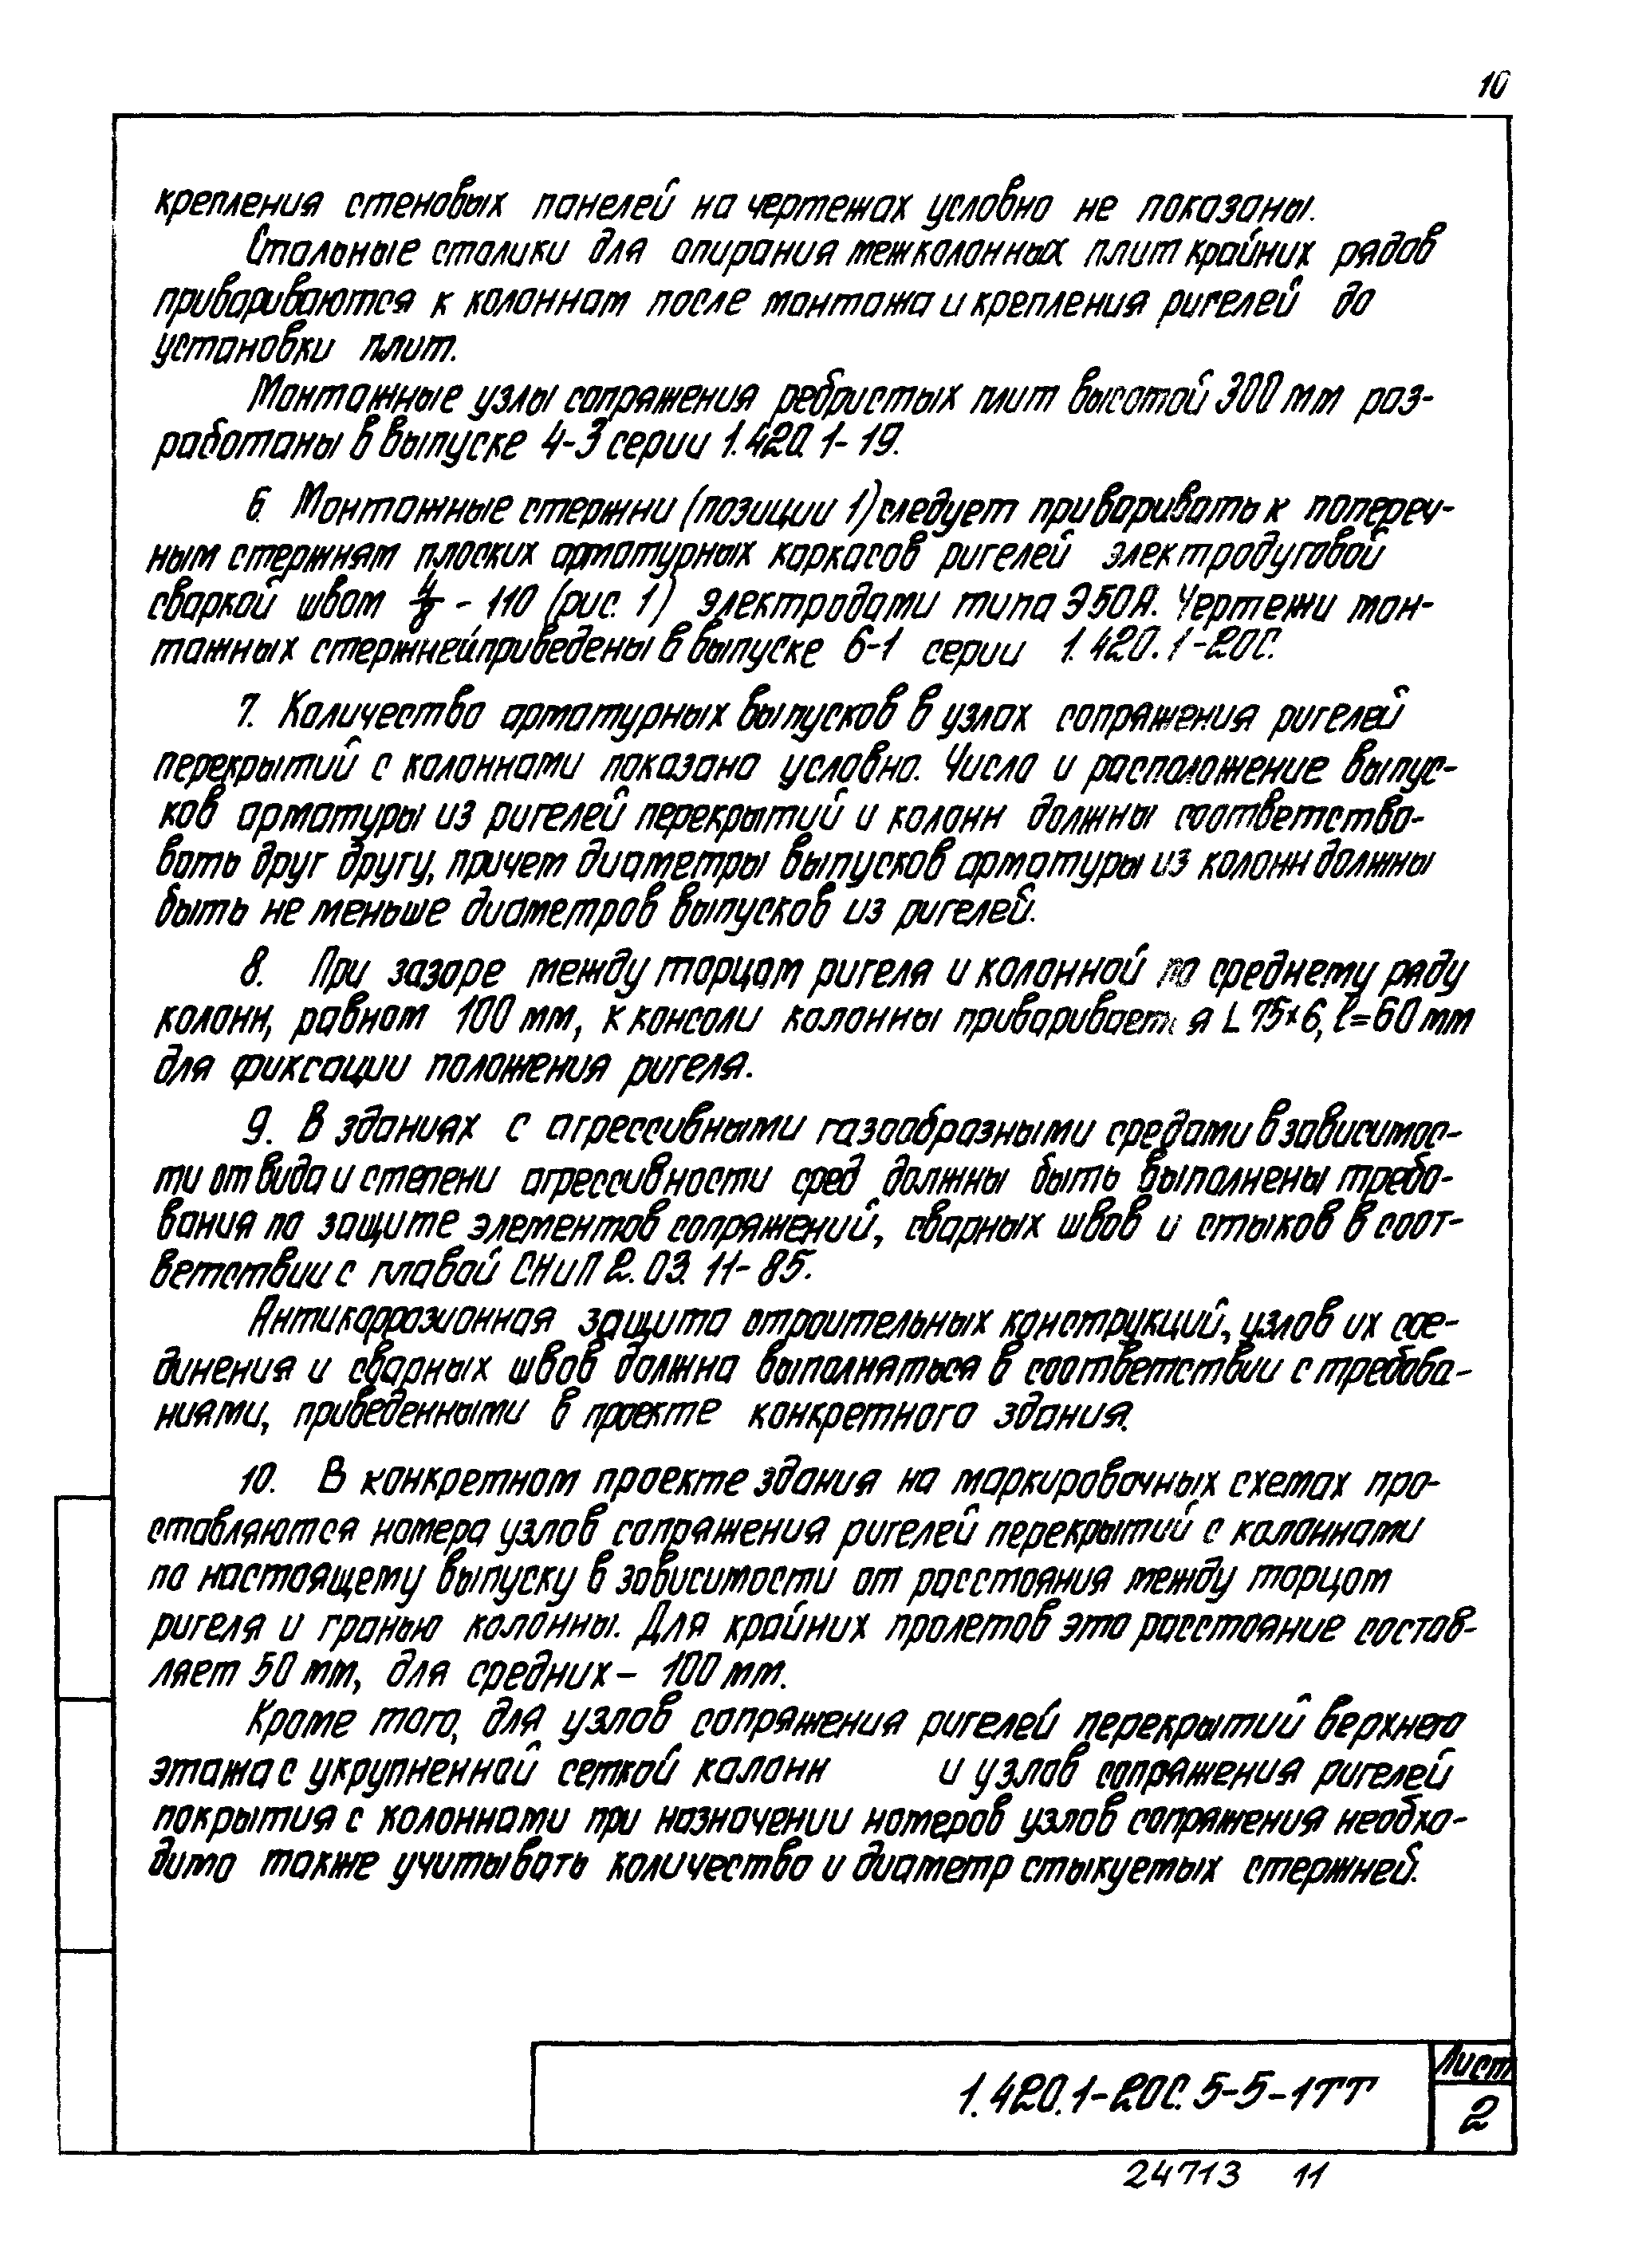 10
крепления стеновых панелей на чертежах условно не показаны.
Стальные столики для опирания межколонных плит крайних рядов
привариваются к колоннам после монтажа и крепления ригелей до
установки плит.
Монтажные узлы сопряжения ребристых плит высотой 300 мм раз-
работаны в выпуске 4-3 серии 1.420.1-19.
6. Монтажные стержни (позиции 1) следует приваривать к попереч-
ным стержням плоских арматурных каркасов ригелей электродуговой
сваркой швом 4/8 - 110 (рис. 1) электродами типа Э50А. Чертежи мон-
тажных стержней приведены в выпуске 6-1 серии 1.420.1-20С.
7. Количество арматурных выпусков в узлах сопряжения ригелей
перекрытий с колоннами показано условно. Число и расположение выпус-
ков арматуры из ригелей перекрытий и колонн должны соответство-
вать друг другу, причем диаметры выпусков арматуры из колонн должны
быть не меньше диаметров выпусков из ригелей.
8. При зазоре между торцом ригеля и колонной по среднему ряду
колонн, равном 100 мм, к консоли колонны приваривается L 75×6, ℓ=60 мм
для фиксации положения ригеля.
9. В зданиях с агрессивными газообразными средами в зависимос-
ти от вида и степени агрессивности сред должны быть выполнены требо-
вания по защите элементов сопряжений, сварных швов и стыков в соот-
ветствии с главой СНиП 2.03.11-85.
Антикоррозионная защита строительных конструкций, узлов их сое-
динения и сварных швов должна выполняться в соответствии с требова-
ниями, приведенными в проекте конкретного здания.
10. В конкретном проекте здания на маркировочных схемах про-
ставляются номера узлов сопряжения ригелей перекрытий с колоннами
по настоящему выпуску в зависимости от расстояния между торцом
ригеля и гранью колонны. Для крайних пролетов это расстояние состав-
ляет 50 мм, для средних - 100 мм.
Кроме того, для узлов сопряжения ригелей перекрытий верхнего
этажа с укрупненной сеткой колонн и узлов сопряжения ригелей
покрытия с колоннами при назначении номеров узлов сопряжения необхо-
димо также учитывать количество и диаметр стыкуемых стержней.
1.420.1-20С.5-5-1ТТ
Лист
2
24713 11